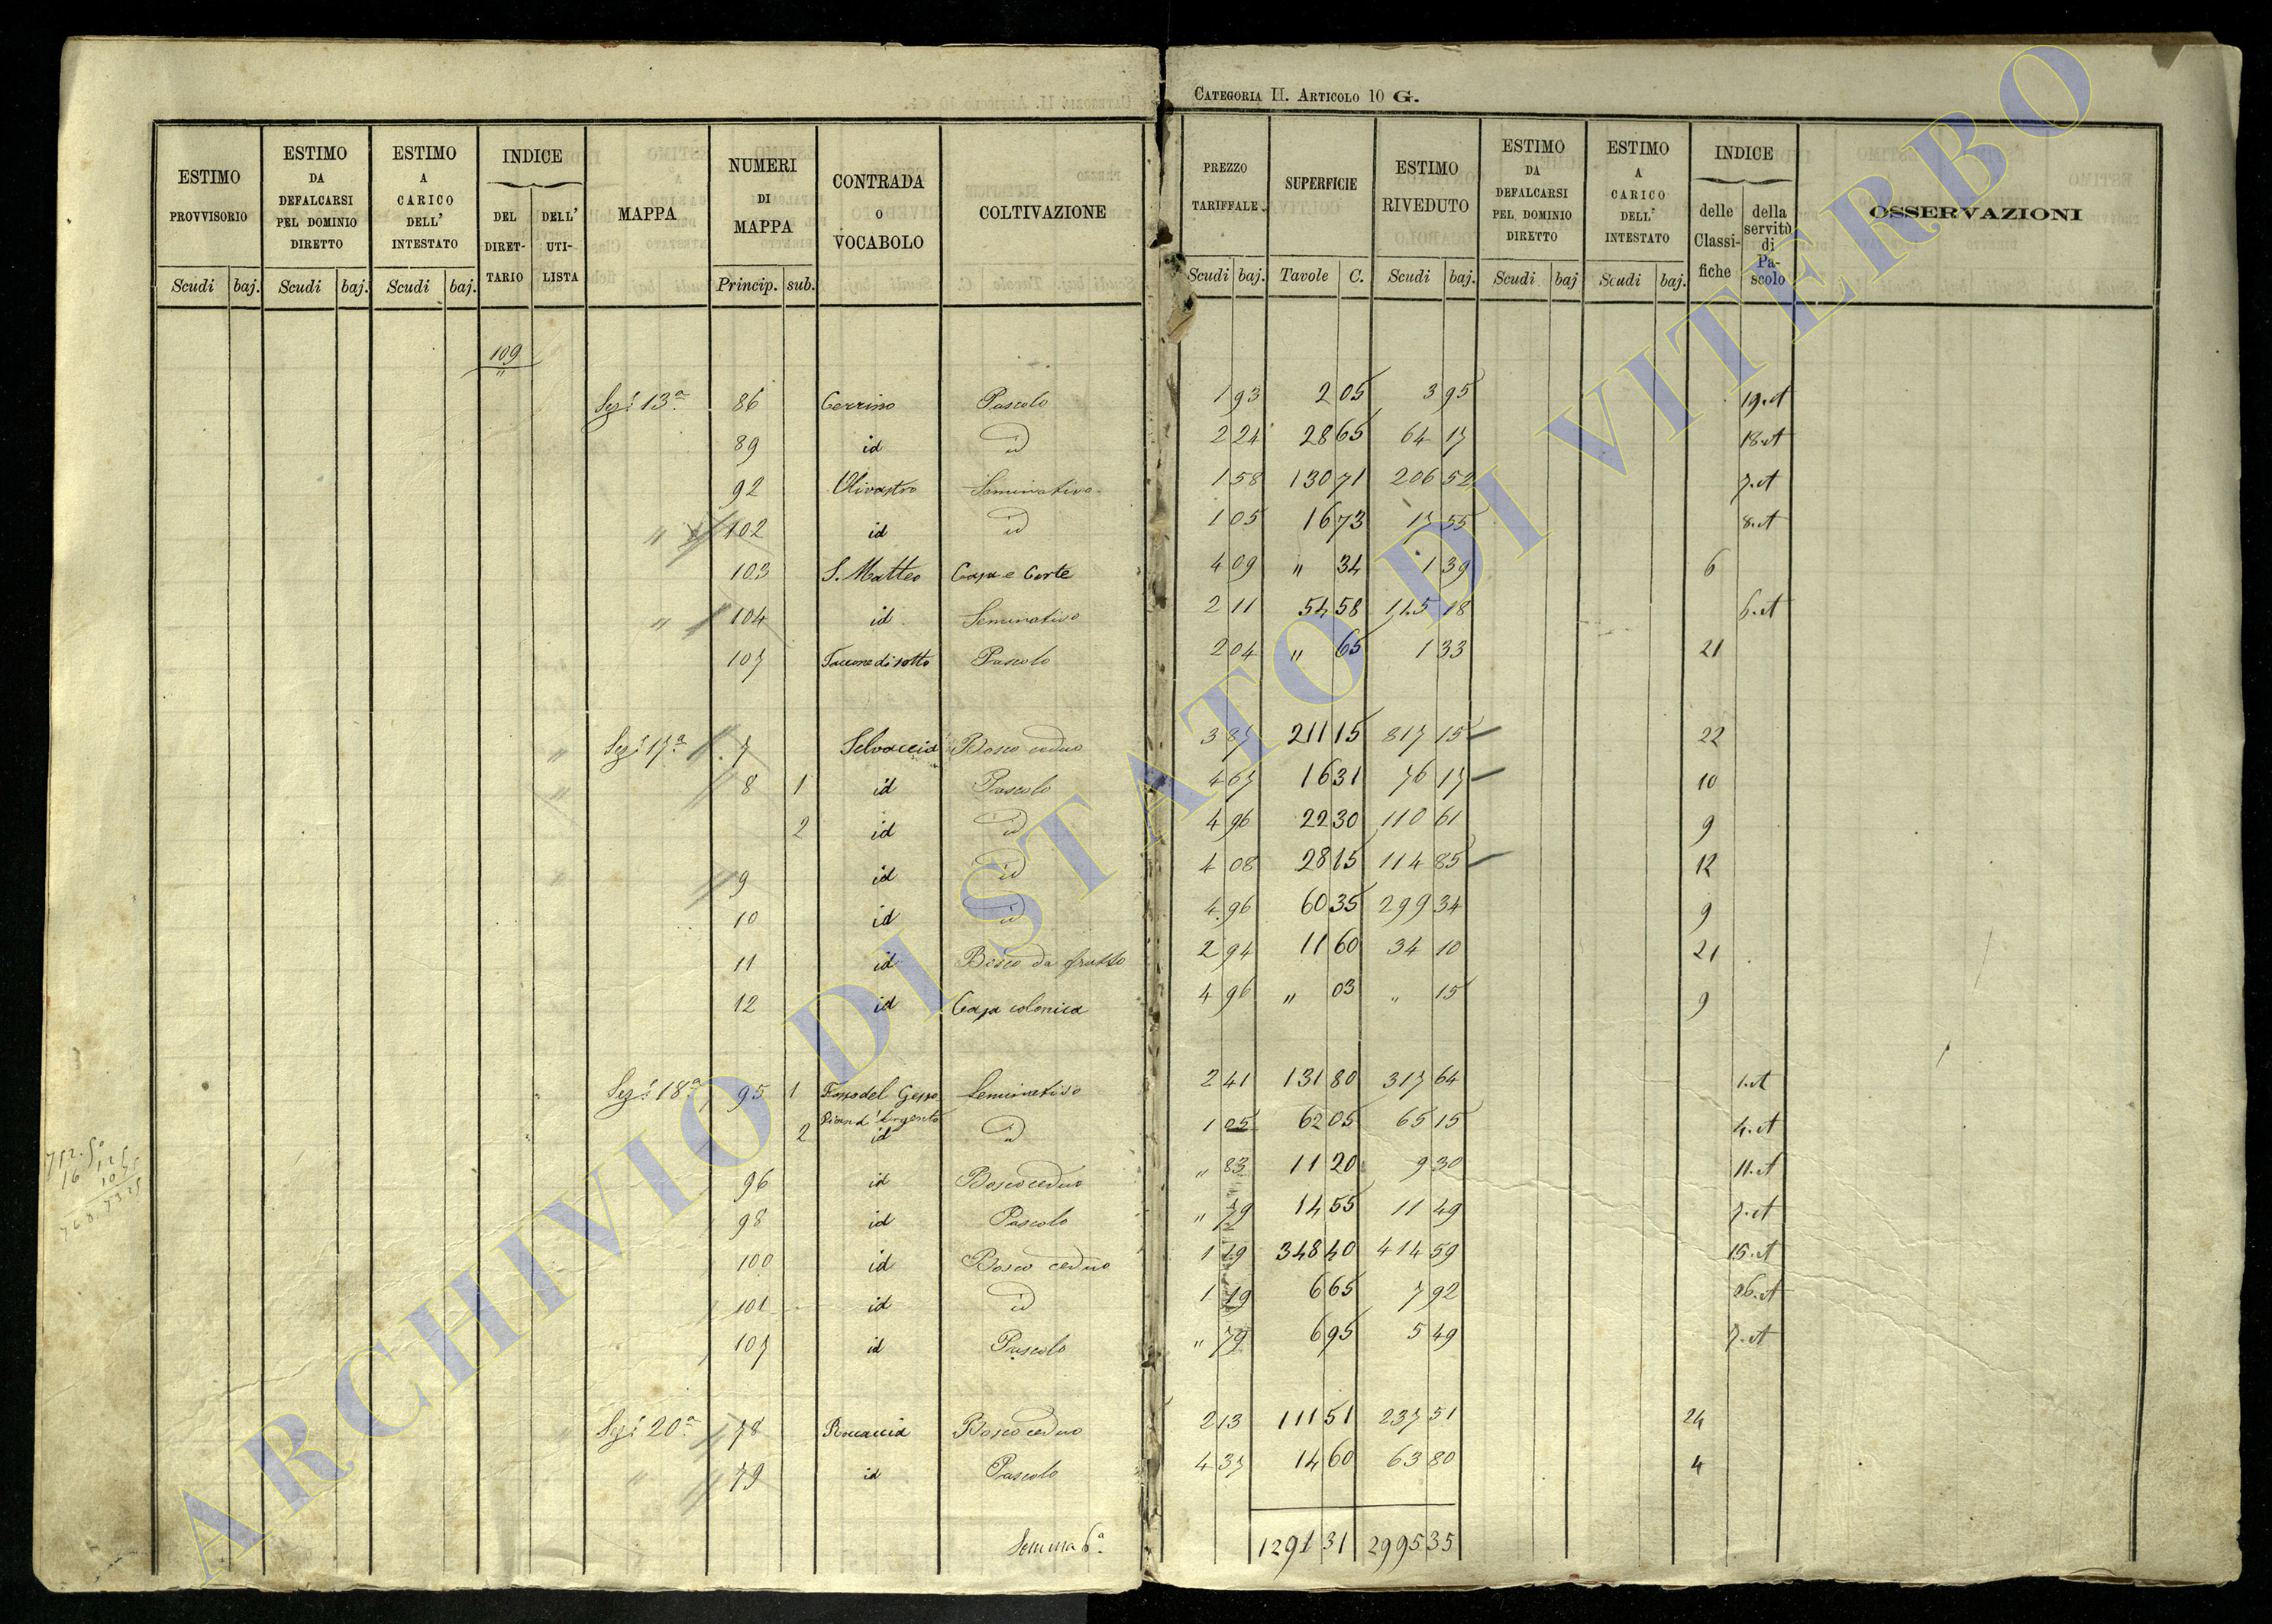 CATEGORIA II. ARTICOLO 10 G.
ESTIMO PROVVISORIO | ESTIMO DA DEFALCARSI PEL DOMINIO DIRETTO | ESTIMO A CARICO DELL' INTESTATO | INDICE DEL DIRETTARIO | DELL' UTILISTA | MAPPA | NUMERI DI MAPPA | CONTRADA O VOCABOLO | COLTIVAZIONE | PREZZO TARIFFALE. | SUPERFICIE | ESTIMO RIVEDUTO | ESTIMO DA DEFALCARSI PEL DOMINIO DIRETTO | ESTIMO A CARICO DELL' INTESTATO | INDICE delle Classifiche | della servitù di Pascolo | OSSERVAZIONI
Scudi | baj. | Scudi | baj. | Scudi | baj. | Princip. | sub. | Scudi | baj. | Tavole | C. | Scudi | baj. | Scudi | baj | Scudi | baj.
109
"
Sez.e 13a 86 Cerrino Pascolo 1 93 2 05 3 95 19.A
89 id id 2 24 28 65 64 17 18.A
92 Olivastro Seminativo 1 58 130 71 206 52 7.A
" 102 id id 1 05 16 73 17 55 8.A
103 S. Matteo Casa e Corte 4 09 " 34 1 39 6
" 104 id Seminativo 2 11 54 58 115 18 6.A
107 Taccone di sotto Pascolo 2 04 " 65 1 33 21
" Sez.e 17a 7 Selvaccia Bosco ceduo 3 87 211 15 817 15 22
" 8 1 id Pascolo 4 67 16 31 76 17 10
2 id id 4 96 22 30 110 61 9
" 9 id id 4 08 28 15 114 85 12
10 id id 4 96 60 35 299 34 9
11 id Bosco da frutto 2 94 11 60 34 10 21
12 id Casa colonica 4 96 " 03 " 15 9
Sez.e 18a 95 1 Fosso del Gesso Seminativo 2 41 131 80 317 64 1.A
Pian d'Argento
2 id id 1 05 62 05 65 15 4.A
96 id Bosco ceduo " 83 11 20 9 30 11.A
98 id Pascolo " 79 14 55 11 49 7.A
100 id Bosco ceduo 1 19 348 40 414 59 15.A
101 id id 1 19 6 65 7 92 16.A
107 id Pascolo " 79 6 95 5 49 7.A
" Sez.e 20a 78 Roccaccia Bosco ceduo 2 13 111 51 237 51 24
" 79 id Pascolo 4 37 14 60 63 80 4
Somma 6a. 1291 31 2995 35
ARCHIVIO DI STATO DI VITERBO